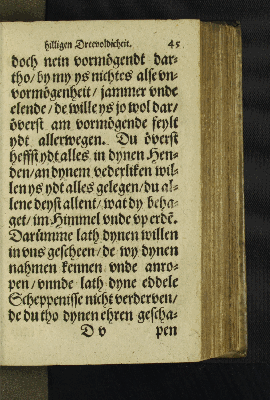 hilligen Dreevoldicheit. 45
doch nein vormögendt dar⸗
tho/ by my ys nichtes alse vn⸗
vormögenheit/ jammer vnde
elende/ de wille ys jo wol dar/
överst am vormögende feylt
ydt allerwegen. Du överst
heffst ydt alles in dynen Hen⸗
den/ an dynem vederliken wil⸗
len ys ydt alles gelegen/ du al⸗
lene deyst allent/ wat dy beha⸗
get/ im Himmel vnde vp erdē.
Darümme lath dynen willen
in vns gescheen/ de wy dynen
nahmen kennen vnde anro⸗
pen/ vnnde lath dyne eddele
Scheppenisse nicht verderven/
de du tho dynen ehren gescha⸗
D v pen